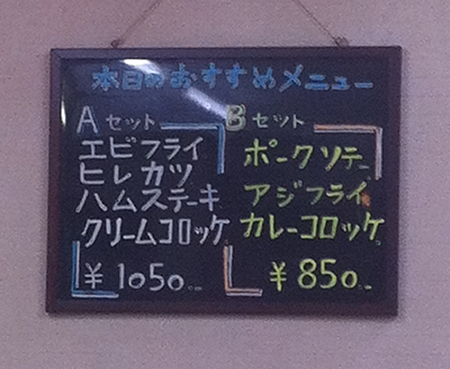 本日のおすすめメニュー
Aセット
エビフライ
ヒレカツ
ハムステーキ
クリームコロッケ
¥1050
Bセット
ポークソテー
アジフライ
カレーコロッケ
¥850